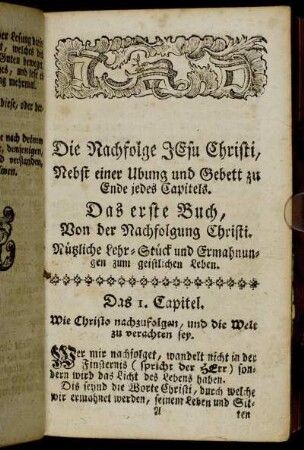 ner Losung
, welches
Guten
es, und
ng mehrmal.
diese, oder
e nach deinem
demjenigen,
nd verstanden,
men.
Die Nachfolge JEsu Christi,
Nebst einer Ubung und Gebett zu
Ende jedes Capitels.
Das erste Buch,
Von der Nachfolgung Christi.
Nützliche Lehr-Stück und Ermahnun-
gen zum geistlichen Leben.
Das 1. Capitel.
Wie Christo nachzufolgen, und die Welt
zu verachten sey.
Wer mir nachfolget, wandelt nicht in der
Finsternis (spricht der HErr) son-
dern wird das Licht des Lebens haben.
Dis seynd die Worte Christi, durch welche
wir ermahnet werden, seinem Leben und Sit-
A ten